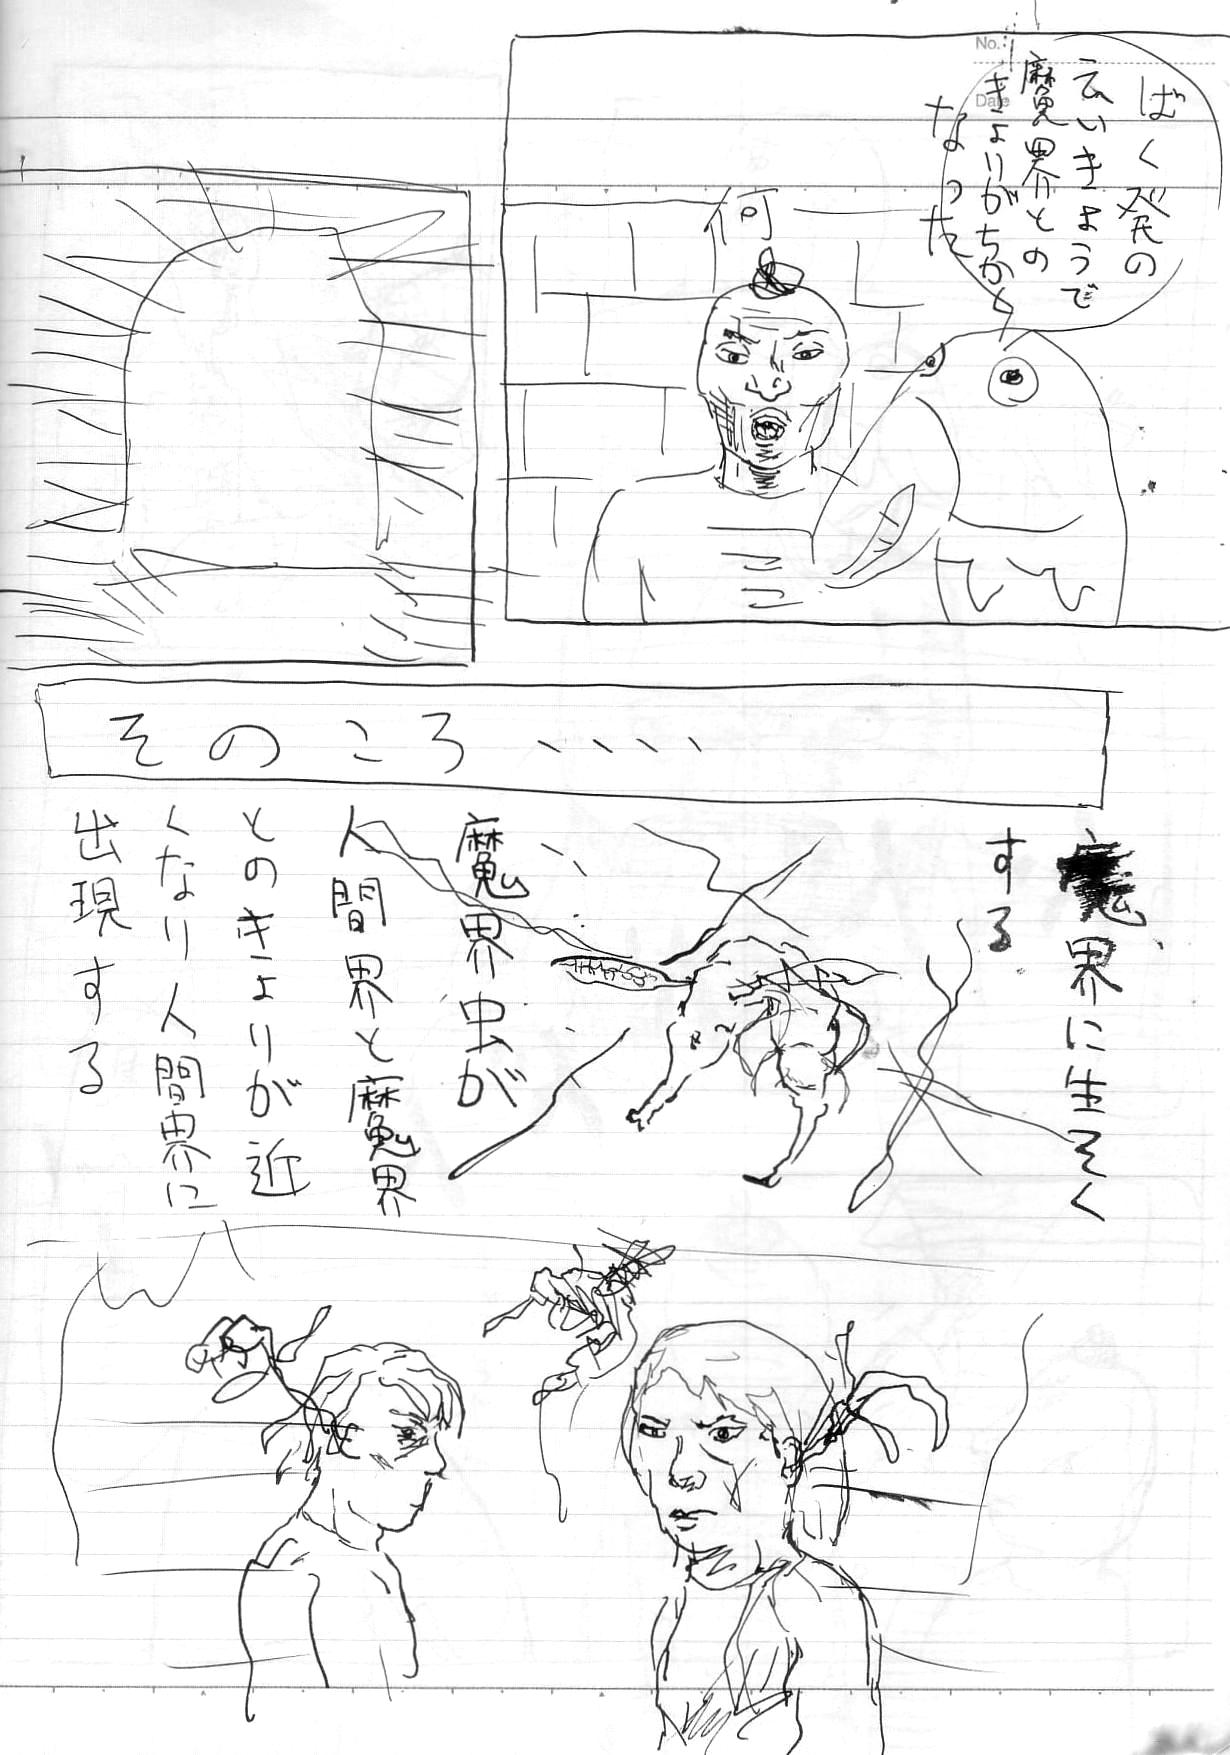 ばく発の
えいきょうで
魔界との
きょりがちかく
なった
何
No.
Date
そのころ、、、、
魔界に生そく
する
魔界虫が
人間界と魔界
とのきょりが近
くなり人間界に
出現する